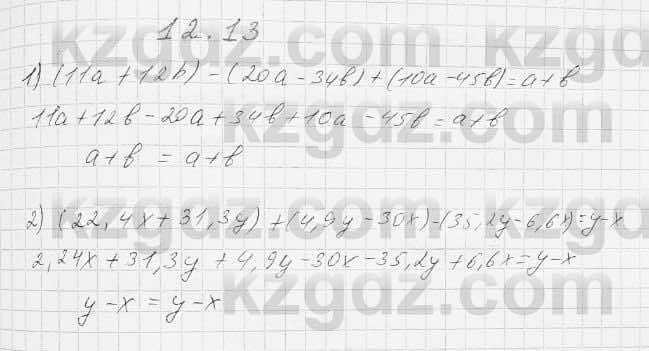 12.13
1) (11a + 12b) - (20a - 34b) + (10a - 45b) = a + b
11a + 12b - 20a + 34b + 10a - 45b = a + b
a + b = a + b
2) (22,4x + 31,3y) + (4,9y - 30x) - (35,2y - 6,6x) = y - x
2,24x + 31,3y + 4,9y - 30x - 35,2y + 6,6x = y - x
y - x = y - x
kzgdz.com
kzgdz.com
kzgdz.com
kzgdz.com